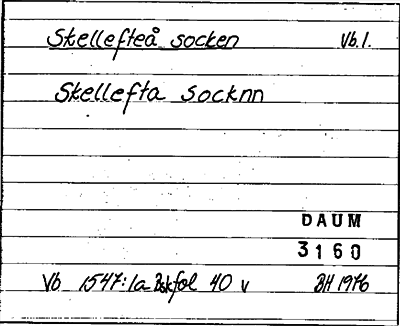 Skellefteå socken Vb.l.
Skellefta socknn
DAUM
3160
Vb 1547:1a Bskfol 40 v BH 1976